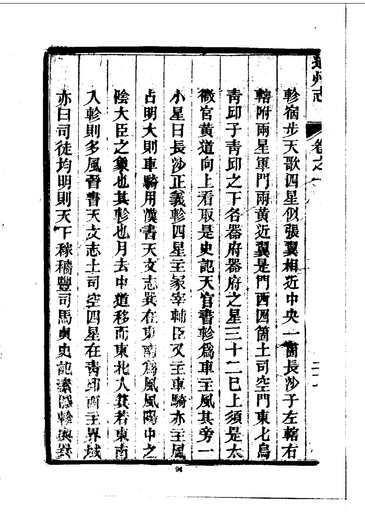 軫宿步天歌四星似張翼相近中央一箇長沙子左轄右
轄附兩星軍門兩黃近翼是門西四箇土司空門東七烏
靑邱子靑邱之下名器府器府之星三十二已上須是太
微宮黃道向上看取是史記天官書軫爲車主風其旁一
小星曰長沙正義軫四星主冢宰輔臣又主車騎亦主風
占明大則車騎用漢書天文志巽在東南爲風風陽中之
陰大臣之象也其軫也月去中道移而東北入箕若東南
入軫則多風晉書天文志土司空四星在靑邱南主界域
亦曰司徒均明則天下稼穡豐司馬貞史記索隱軫與巽
州志
卷之一
94